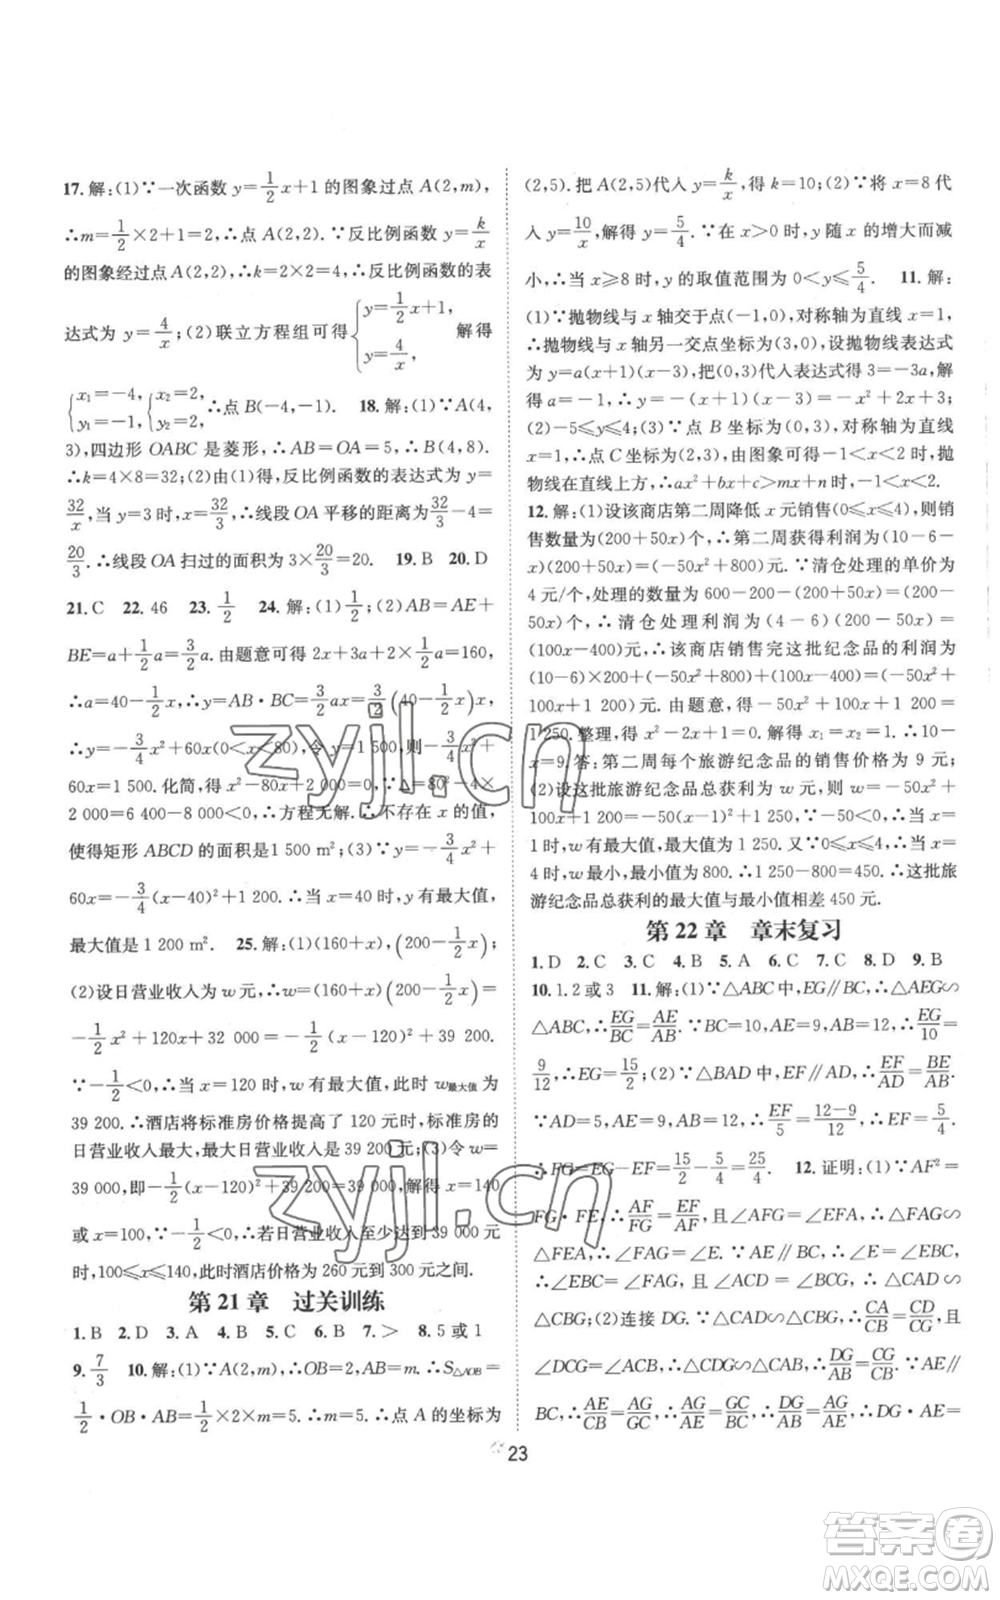 17.解:(1)∵一次函数 y=1/2x+1 的图象过点 A(2,m),
∴m=1/2×2+1=2.∴点 A(2,2).∵反比例函数 y=k/x
的图象经过点 A(2,2),∴k=2×2=4.∴反比例函数的表
达式为 y=4/x;(2)联立方程组可得{y=1/2x+1, y=4/x, 解得
{x₁=-4, y₁=-1, {x₂=2, y₂=2. ∴点 B(-4,-1). 18.解:(1)∵A(4,
3),四边形 OABC 是菱形,∴AB=OA=5,∴B(4,8).
∴k=4×8=32;(2)由(1)得,反比例函数的表达式为 y=
32/x,当 y=3 时,x=32/3,∴线段 OA 平移的距离为32/3-4=
20/3.∴线段 OA 扫过的面积为 3×20/3=20. 19.B 20.D
21.C 22.46 23.1/2 24.解:(1)1/2;(2)AB=AE+
BE=a+1/2a=3/2a.由题意可得 2x+3a+2×1/2a=160,
∴a=40-1/2x,∴y=AB·BC=3/2ax=3/2(40-1/2x)x,
∴y=-3/4x²+60x(0<x<80),令 y=1 500,则-3/4x²+
60x=1 500.化简,得 x²-80x+2 000=0.∵Δ=80²-4×
2 000=6 400-8 000<0,∴方程无解.∴不存在 x 的值,
使得矩形 ABCD 的面积是1 500 m²;(3)∵y=-3/4x²+
60x=-3/4(x-40)²+1 200.∴当 x=40 时,y 有最大值,
最大值是 1 200 m². 25.解:(1)(200+x),(200-1/2x);
(2)设日营业收入为 w 元,∴w=(200+x)(200-1/2x)=
-1/2x²+120x+40 000=-1/2(x-120)²+39 200.
∵-1/2<0,∴当 x=120 时,w 有最大值,此时 w最大值=
39 200.∴酒店将标准房价格提高了 120 元时,标准房的
日营业收入最大,最大日营业收入是 39 200 元;(3)令 w=
39 000,即-1/2(x-120)²+39 200=39 000,解得 x=140
或 x=100,∵-1/2<0,∴若日营业收入至少达到 39 000 元
时,100≤x≤140,此时酒店价格为 260 元到 300 元之间.
第 21 章 过关训练
1.B 2.D 3.A 4.B 5.C 6.B 7.> 8.5 或 1
9.7/3 10.解:(1)∵A(2,m),∴OB=2,AB=m.∴S△AOB=
1/2·OB·AB=1/2×2×m=5.∴m=5.∴点 A 的坐标为
(2,5).把 A(2,5)代入 y=k/x,得 k=10;(2)∵将 x=8代
入 y=10/x,解得 y=5/4.∵在 x>0 时,y 随 x 的增大而减
小,∴当 x≥8 时,y 的取值范围为 0<y≤5/4. 11.解:
(1)∵抛物线与 x 轴交于点(-1,0),对称轴为直线 x=1,
∴抛物线与 x 轴另一交点坐标为(3,0),设抛物线表达式
为 y=a(x+1)(x-3),把(0,3)代入表达式得 3=-3a,解
得 a=-1,∴y=-(x+1)(x-3)=-x²+2x+3;
(2)-5≤y≤4;(3)∵点 B 坐标为(0,3),对称轴为直线
x=1,∴点 C 坐标为(2,3),由图象可得当 0<x<2 时,抛
物线在直线上方,∴ax²+bx+c>mx+n 时,0<x<2.
12.解:(1)设该商店第二周降低 x 元销售(0≤x≤4),则销
售数量为(200+50x)个,∴第二周获得利润为(10-6-
x)(200+50x)=(-50x²+800)元.∵清仓处理的单价为
4 元/个,处理的数量为 600-200-(200+50x)=(200-
50x)个,∴清仓处理利润为(4-6)(200-50x)=
(100x-400)元,∴该商店销售完这批纪念品的利润为
(10-6)×200+(-50x²+800)+(100x-400)=(-50x²+
100x+1 200)元.由题意,得-50x²+100x+1 200=
1 250.整理,得 x²-2x+1=0.解得 x₁=x₂=1.∴10-
x=9.答:第二周每个旅游纪念品的销售价格为 9 元;
(2)设这批旅游纪念品总获利为 w 元,则 w=-50x²+
100x+1 200=-50(x-1)²+1 250,∵-50<0,∴当 x=
1 时,w 最大,最大值为 1 250.∵0≤x≤4,∴当 x=
4 时,w 最小,最小值为 800.∴1 250-800=450.∴这批旅
游纪念品总获利的最大值与最小值相差 450 元.
第 22 章 章末复习
1.D 2.C 3.C 4.B 5.A 6.C 7.C 8.D 9.B
10.1.2 或 3 11.解:(1)∵△ABC 中,EG∥BC,∴△AEG∽
△ABC,∴EG/BC=AE/AB.∵BC=10,AE=9,AB=12,∴EG/10=
9/12,∴EG=15/2;(2)∵△BAD 中,EF∥AD,∴EF/AD=BE/AB.
∵AD=5,AE=9,AB=12,∴EF/5=(12-9)/12,∴EF=5/4,
∴FG=EG-EF=15/2-5/4=25/4. 12.证明:(1)∵AF²=
FG·FE,∴AF/FG=EF/AF,且∠AFG=∠EFA,∴△FAG∽
△FEA,∴∠FAG=∠E.∵AE∥BC,∴∠E=∠EBC,
∴∠EBC=∠FAG,且∠ACD=∠BCG,∴△CAD∽
△CBG;(2)连接 DG,∵△CAD∽△CBG,∴CA/CB=CD/CG,且
∠DCG=∠ACB,∴△CDG∽△CAB,∴DG/AB=CG/CB.∵AE∥
BC,∴AE/CB=AG/GC,∴AG/AE=GC/BC,∴DG/AB=AG/AE,∴DG·AE=
23
zyjl.cn
zyjl.cn
答案圈
MXQE.COM